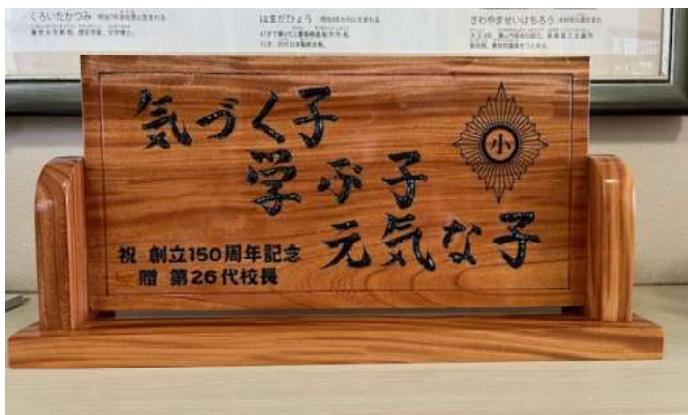 くろいたかつみ
はまだひょう
さわやませいはちろう
気づく子
学ぶ子
元気な子
小
祝 創立150周年記念
贈 第26代校長